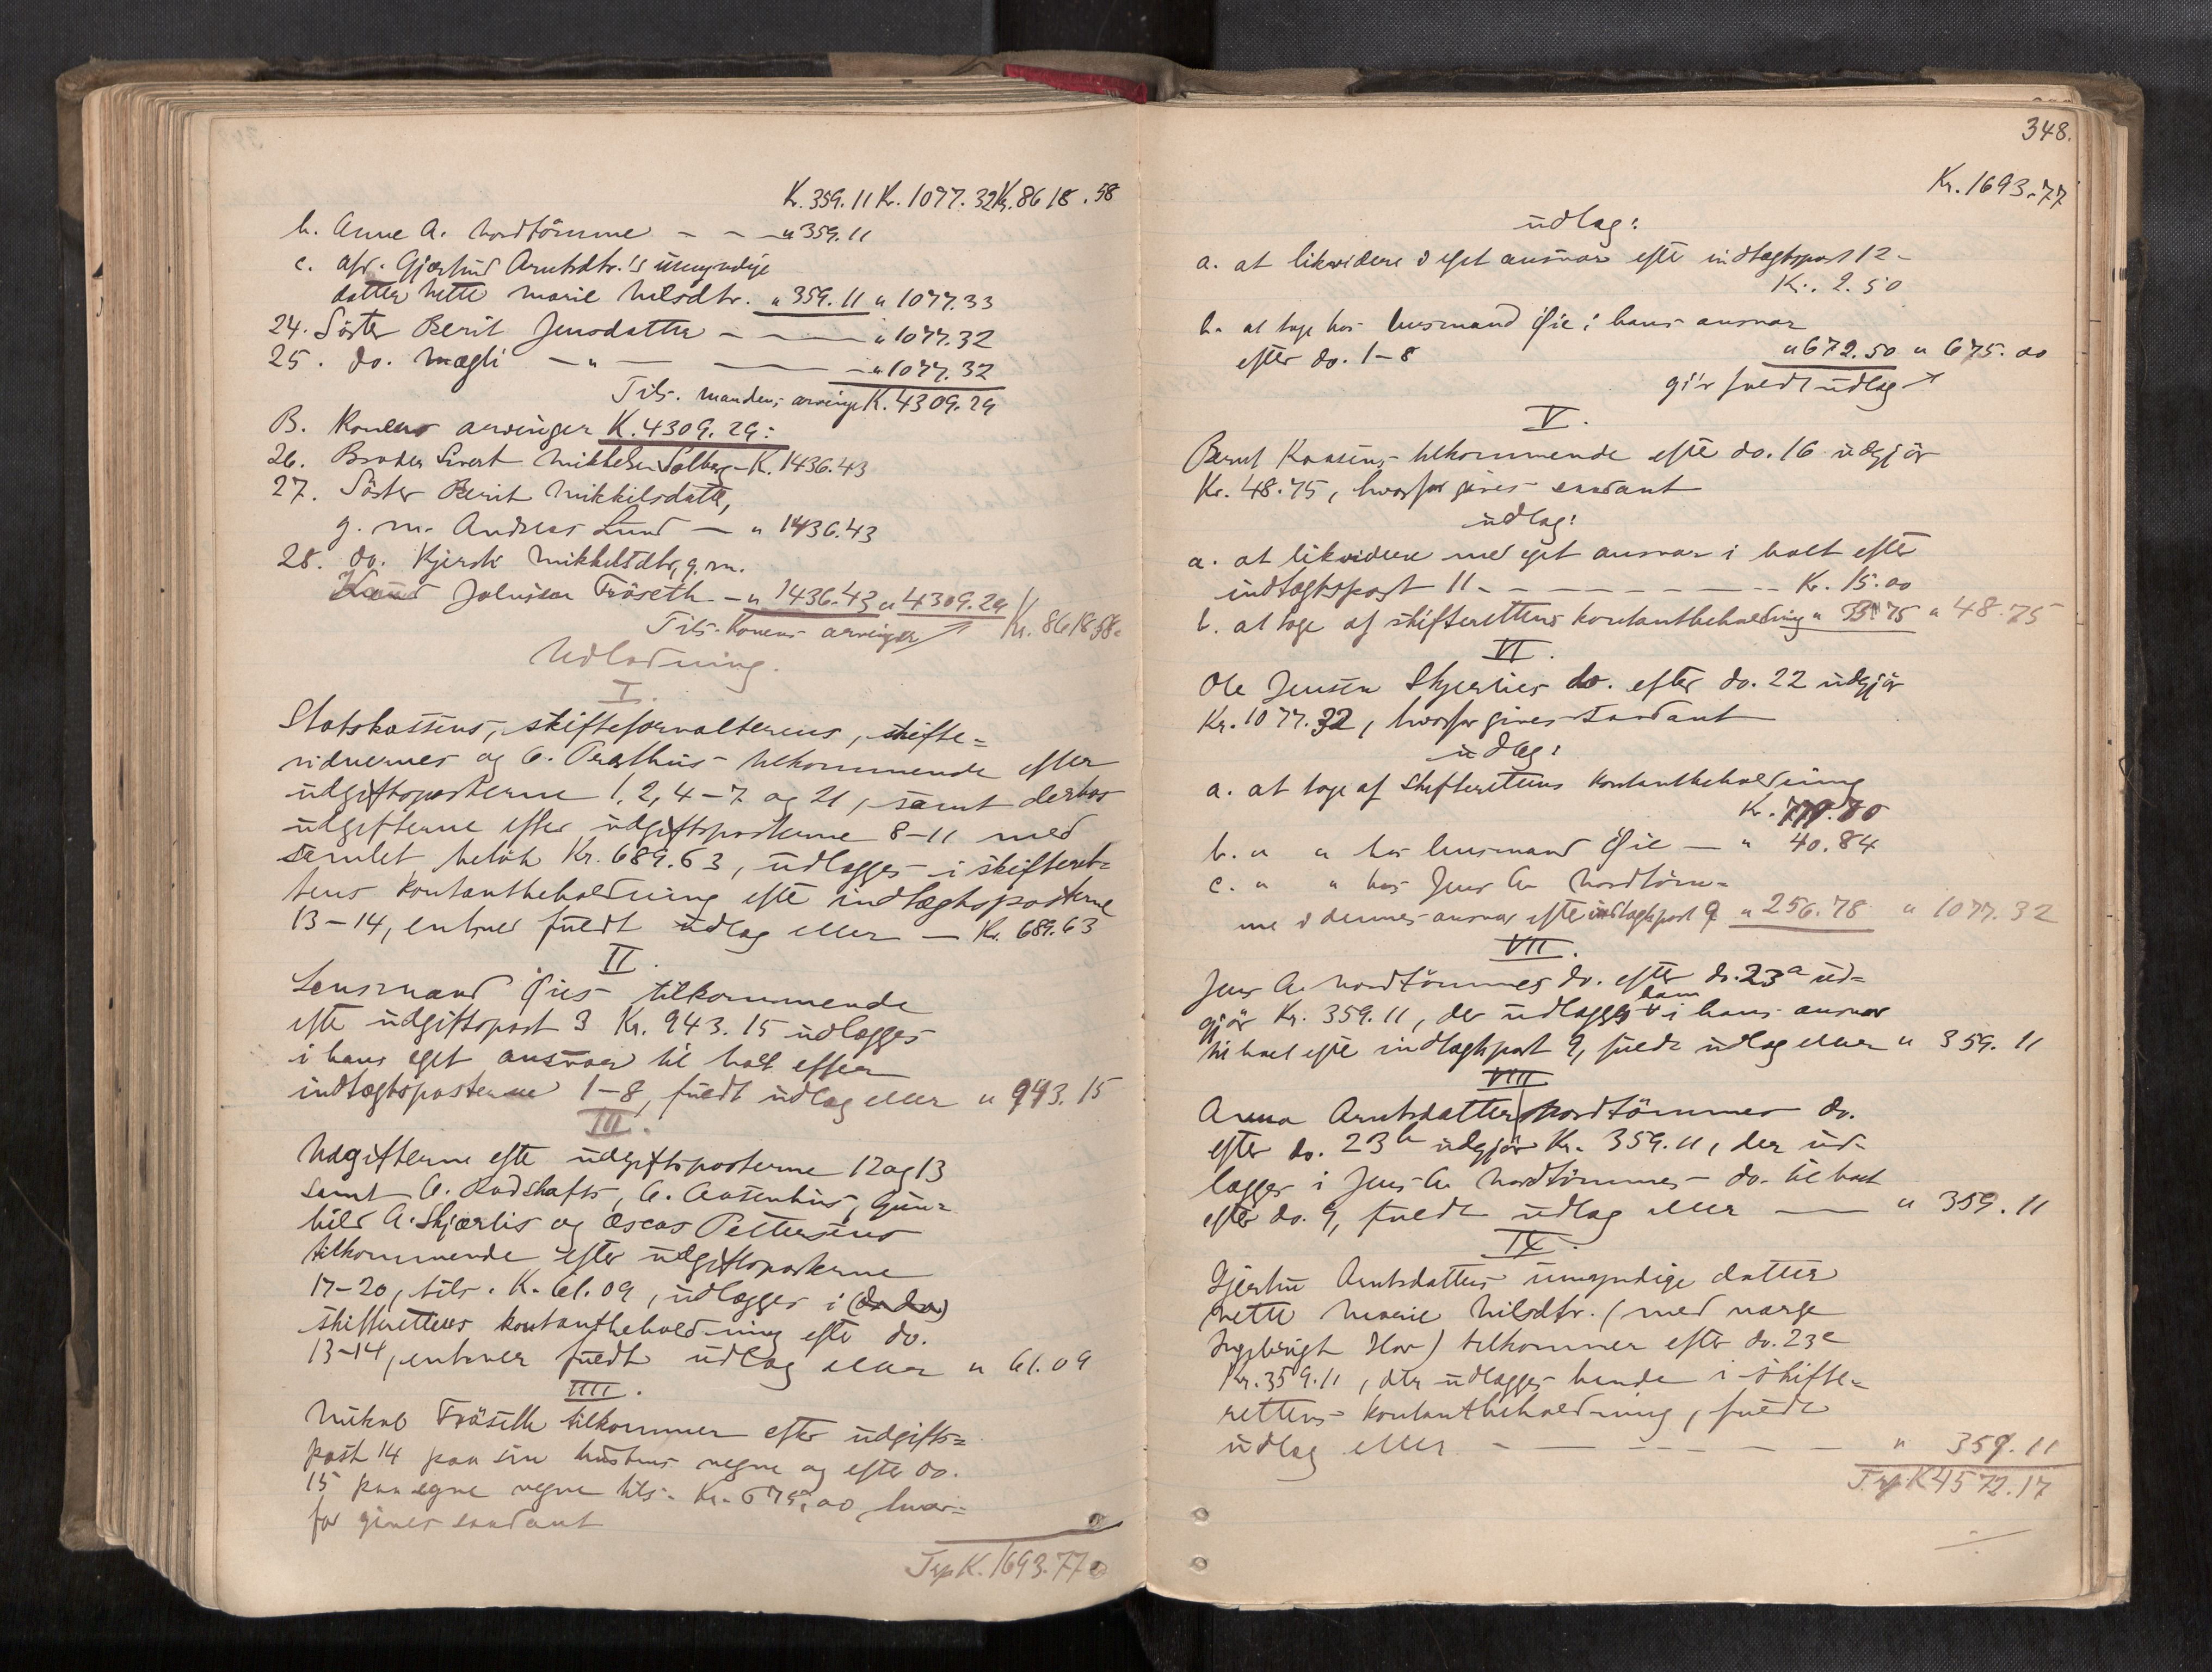 K. 359.11 Kr. 1077.32 Kr. 8618.58
b. Anne A. Nordtömme - - - " 359.11
c. afd. Gjertrud Arntsdtr.'s umyndige
datter Nette Marie Nilsdtr. " 359.11 " 1077.33
24. Söster Berit Jensdatter - - - " 1077.32
25. do. Magli - " - - - " 1077.32
Tils. mandens arvinger K. 4309.29
B. Konens arvinger K. 4309.29:
26. Broder Sivert Mikkelsen Solberg - K. 1436.43
27. Söster Berit Mikkelsdatter,
g. m. Andreas Lund - " 1436.43
28. do. Kjersti Mikkelsdtr, g. m.
Johnsen Fröseth - " 1436.43 " 4309.29
Tils. Konens arvinger Kr. 8618.58
Udlodning.
I.
Statskassens, skifteforvalterens, skifte=
vidnernes og tilkommende efter
udgiftsposterne 1, 2, 4-7 og 21, samt derhos
udgifterne efter udgiftsposterne 8-11 med
samlet belöb Kr. 689.63, udlægges i skifteret-
tens kontantbeholdning efter indtægtsposterne
13-14, enhver fuldt udlag eller - Kr. 689.63
II.
Lensmand Öies tilkommende
efter udgiftspost 3 Kr. 943.15 udlægges
i hans eget ansvar til holt efter
indtægtsposterne 1-8, fuldt udlag eller " 943.15
III.
Udgifterne efter udgiftsposterne 12 og 13
samt A. Rødshafts, A. Aasenhus, Gun=
hild A. Skjærlis og Oscar Pettersens
tilkommende efter udgiftsposterne
17-20, tils. K. 61.09, udlægges i (do do)
skifterettens kontantbeholdning efter do.
13-14, enhver fuldt udlag eller " 61.09
IIII.
Mikal Fröseth tilkommer efter udgifts=
post 14 paa sin hustrus vegne og efter do.
15 paa egne vegne tils. Kr. 675.00, hvor=
for gives saadant
Trsp K. 1693.77
348.
Kr. 1693.77
udlag:
a. at likvidere i eget ansvar efter indtægtspost 12 -
Kr. 2.50
b. at tage hos lensmand Öie i hans ansvar
efter do. 1-8 " 672.50 " 675.00
gi'r fuldt udlag
V.
Bernt Kaasens tilkommende efter do. 16 udgjör
Kr. 48.75, hvorfor gives saadant
udlag:
a. at likvidere med eget ansvar i holt efter
indtægtspost 11 - - - - - Kr. 15.00
b. at tage af skifterettens kontantbeholdning " 33.75 " 48.75
VI.
Ole Jensen Skjerlies do. efter do. 22 udgjör
Kr. 1077.32, hvorfor gives saadant
udlag:
a. at tage af skifterettens kontantbeholdning
Kr. 779.70
b. " " hos lensmand Öie - " 40.84
c. " " hos Jens A. Nordtöm=
me i dennes ansvar efter indtægtspost 9 " 256.78 " 1077.32
VII.
Jens A. Nordtömmes do. efter do. 23a ud=
gjör Kr. 359.11, der udlægges ham i hans ansvar
til holt efter indtægtspost 9, fuldt udlag eller " 359.11
VIII
Anna Arntsdatter Nordtömmes do.
efter do. 23b udgjör Kr. 359.11, der ud-
lægges i Jens A. Nordtömmes do. til holt
efter do. 9, fuldt udlag eller - " 359.11
IX.
Gjertru Arntsdatters umyndige datter
Nette Marie Nilsdtr. (med værge
Ingebrigt Hov) tilkommer efter do. 23c
Kr. 359.11, der udlægges hende i skifte=
rettens kontantbeholdning, fuldt
udlag eller - - - - - " 359.11
Trsp. K 4572.17